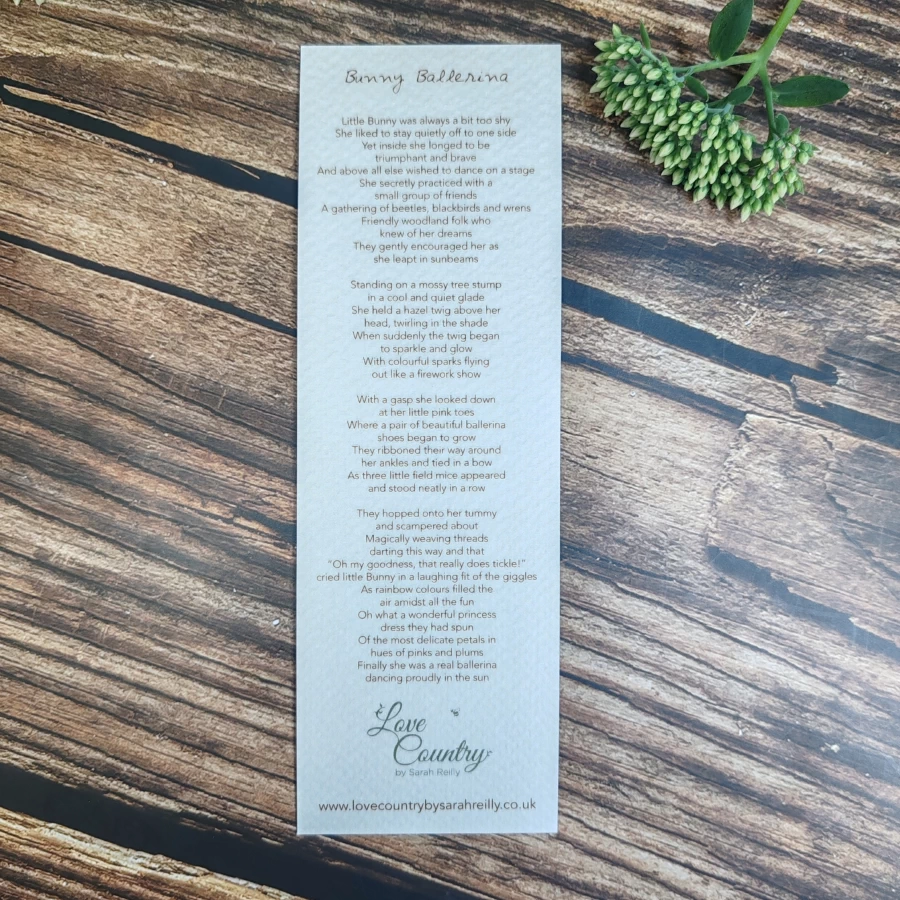 Bunny Ballerina
Little Bunny was always a bit too shy
She liked to stay quietly off to one side
Yet inside she longed to be
triumphant and brave
And above all else wished to dance on a stage
She secretly practiced with a
small group of friends
A gathering of beetles, blackbirds and wrens
Friendly woodland folk who
knew of her dreams
They gently encouraged her as
she leapt in sunbeams
Standing on a mossy tree stump
in a cool and quiet glade
She held a hazel twig above her
head, twirling in the shade
When suddenly the twig began
to sparkle and glow
With colourful sparks flying
out like a firework show
With a gasp she looked down
at her little pink toes
Where a pair of beautiful ballerina
shoes began to grow
They ribboned their way around
her ankles and tied in a bow
As three little field mice appeared
and stood neatly in a row
They hopped onto her tummy
and scampered about
Magically weaving threads
darting this way and that
"Oh my goodness, that really does tickle!"
cried little Bunny in a laughing fit of the giggles
As rainbow colours filled the
air amidst all the fun
Oh what a wonderful princess
dress they had spun
Of the most delicate petals in
hues of pinks and plums
Finally she was a real ballerina
dancing proudly in the sun
Love
Country
by Sarah Reilly
www.lovecountrybysarahreilly.co.uk